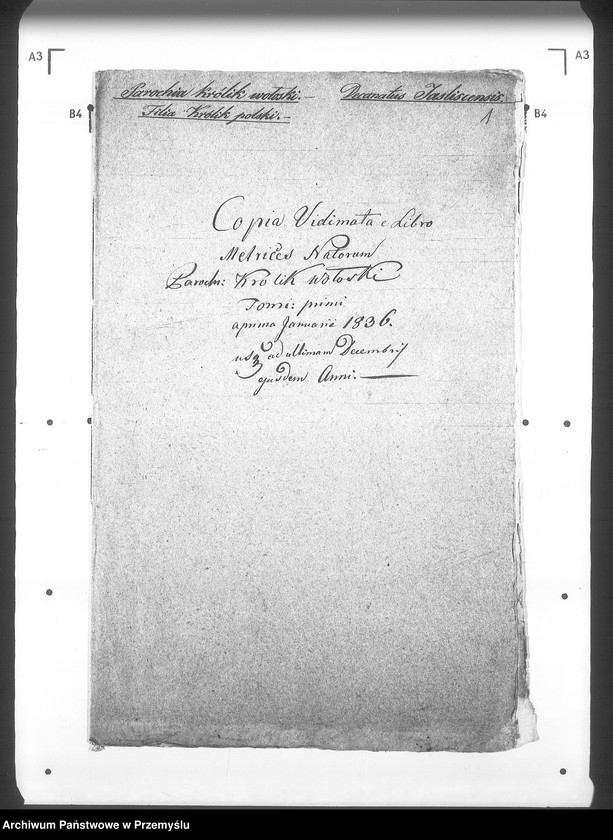 A3
A3
Parochia Królik wołoski.— Decanatus Jasliscensis.
Filia Królik polski.—
B4
B4
1
Copia Vidimata e Libro
Metrices Natorum
Paroch: Królik wołoski
Tomi: primi
a prima Januarii 1836.
usq ad ultimam Decembris
ejusdem Anni.—
Archiwum Państwowe w Przemyślu